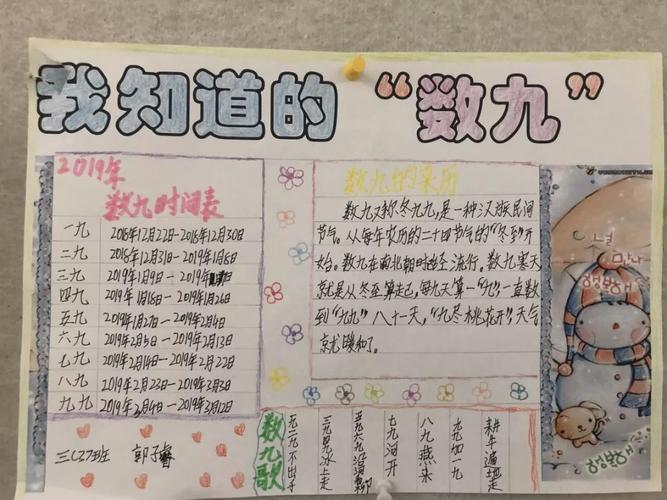 我知道的“数九”
2019年
数九时间表
一九 2018年12月22日-2018年12月30日
二九 2018年12月31日-2019年1月8日
三九 2019年1月9日-2019年
四九 2019年1月18日-2019年1月26日
五九 2019年1月27日-2019年2月4日
六九 2019年2月5日-2019年2月13日
七九 2019年2月14日-2019年2月22日
八九 2019年2月23日-2019年3月3日
九九 2019年2月4日-2019年3月12日
三(2)班 郭子睿
数九的来历
数九又称冬九九,是一种汉族民间
节气。从每年农历的二十四节气的“冬至”开
始。数九在南北朝时已经流行。数九寒天
就是从冬至算走已,每九天算一“九”,一直数
到“九九”八十一天,“九尽桃花开”,天气
就暖和了。
数九歌
一九二九不出手
三九四九冰上走
五九六九沿河看柳
七九河开
八九燕来
九九加一九
耕牛遍地走